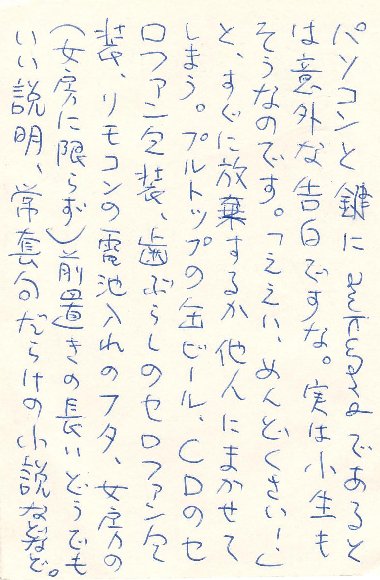 パソコンと鍵に であると
は意外な告白ですな。実は小生も
そうなのです。「ええい、めんどくさい！」
と、すぐに放棄するか他人にまかせて
しまう。プルトップの缶ビール、CDのセ
ロファン包装、歯ぶらしのセロファン包
装、リモコンの電池入れのフタ、女房の
（女房に限らず）前置きの長いどうでも
いい説明、常套句だらけの小説などなど。